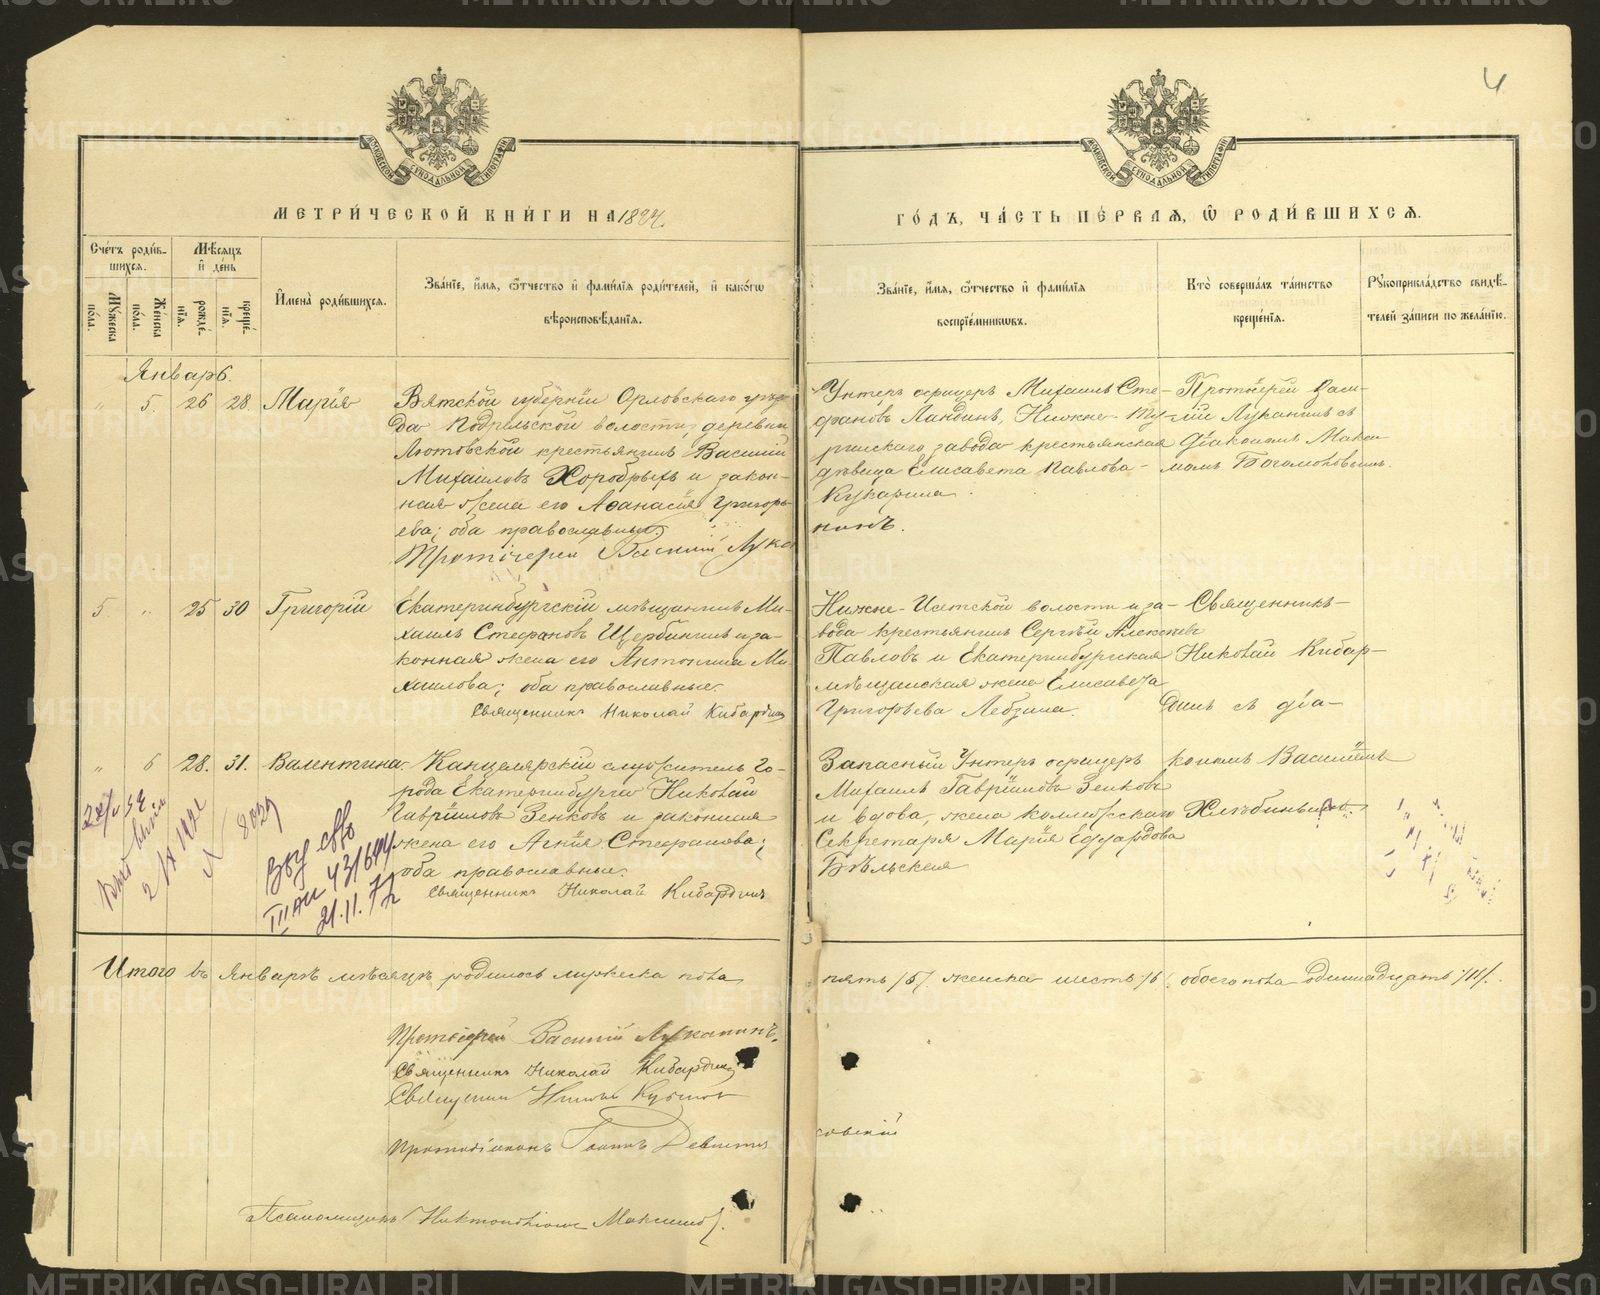 4
МЕТРИ́ЧЕСКОЙ КНИ́ГИ НА 1894.
ГО́ДЪ, ЧА́СТЬ ПЕ́РВАЯ, Ѽ РОДИ́ВШИХСЯ.
Сче́тъ роди́в-
шихся.
Му́жеска по́ла.
Же́нска по́ла.
Мѣ́сяцъ
и҆ де́нь
рожде́нїя.
креще́нїя.
И҆мена̀ роди́вшихся.
Зва́нїе, и҆́мя, ѻ҆́тчество и҆ фами́лїя роди́телей, и҆ како́гѡ
вѣроисповѣ́данїя.
Зва́нїе, и҆́мя, ѻ҆́тчество и҆ фами́лїя
воспрїе́мникѡвъ.
Кто̀ соверша́лъ та́инство
креще́нїя.
Рꙋкоприкла́дство свидѣ́-
телей за́писи по жела́нїю.
Январь.
" 5. 26 28. Марія
Вятской губерніи Орловскаго уѣз-
да Подрельской волости, деревни
крестьянинъ Василій
Михаиловъ Хоробрыхъ и закон-
ная жена его Аѳанасія Григорь-
ева; оба православные.
Протоіерей Василій Лука
Унтеръ офицеръ Михаилъ Сте-
фановъ Ландинъ, Нижне-Ту-
ринскаго завода крестьянская
дѣвица Елисавета Павлова
Кукарина.
нинъ.
Протоіерей Васи-
лій Луканинъ съ
діакономъ Макси-
момъ Богомоловымъ.
5. " 25 30 Григорій
Екатеринбургскій мѣщанинъ Ми-
хаилъ Стефановъ Щербининъ и за-
конная жена его Антонина Ми-
хаилова; оба православные.
Священникъ Николай Кибардинъ
Нижне-Исетской волости и за-
вода крестьянинъ Сергѣй Алексѣевъ
Павловъ и Екатеринбургская
мѣщанская жена Елисавета
Григорьева Лебзина.
Священникъ
Николай Кибар-
динъ съ діа-
" 6 28. 31. Валентина.
Канцелярскій служитель го-
рода Екатеринбурга Николай
Гавріиловъ Зенковъ и законная
жена его Агнія Стефанова;
оба православные.
Священникъ Николай Кибардинъ
Запасный Унтеръ офицеръ
Михаилъ Гавріиловъ Зенковъ
и вдова, жена коллежскаго
Секретаря Марія Едуардова
Бѣльская
кономъ Василіемъ
Хлѣбинымъ.
8029
III АИ 431644
21.11.77
Итого въ Январѣ мѣсяцѣ родилось мужеска пола
пять /5/. женска шесть /6/. обоего пола одиннадцать /11/.
Протоіерей Василій Луканинъ.
Священникъ Николай Кибардинъ
Священникъ
Протодіаконъ Іоаннъ Левит
совскій
Псаломщикъ
METRIKI.GASO-URAL.RU